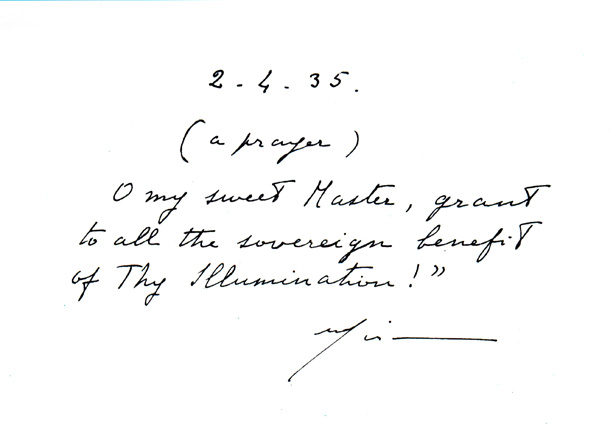 2-4-35.
(a prayer)
O my sweet Master, grant
to all the sovereign benefit
of Thy Illumination!”